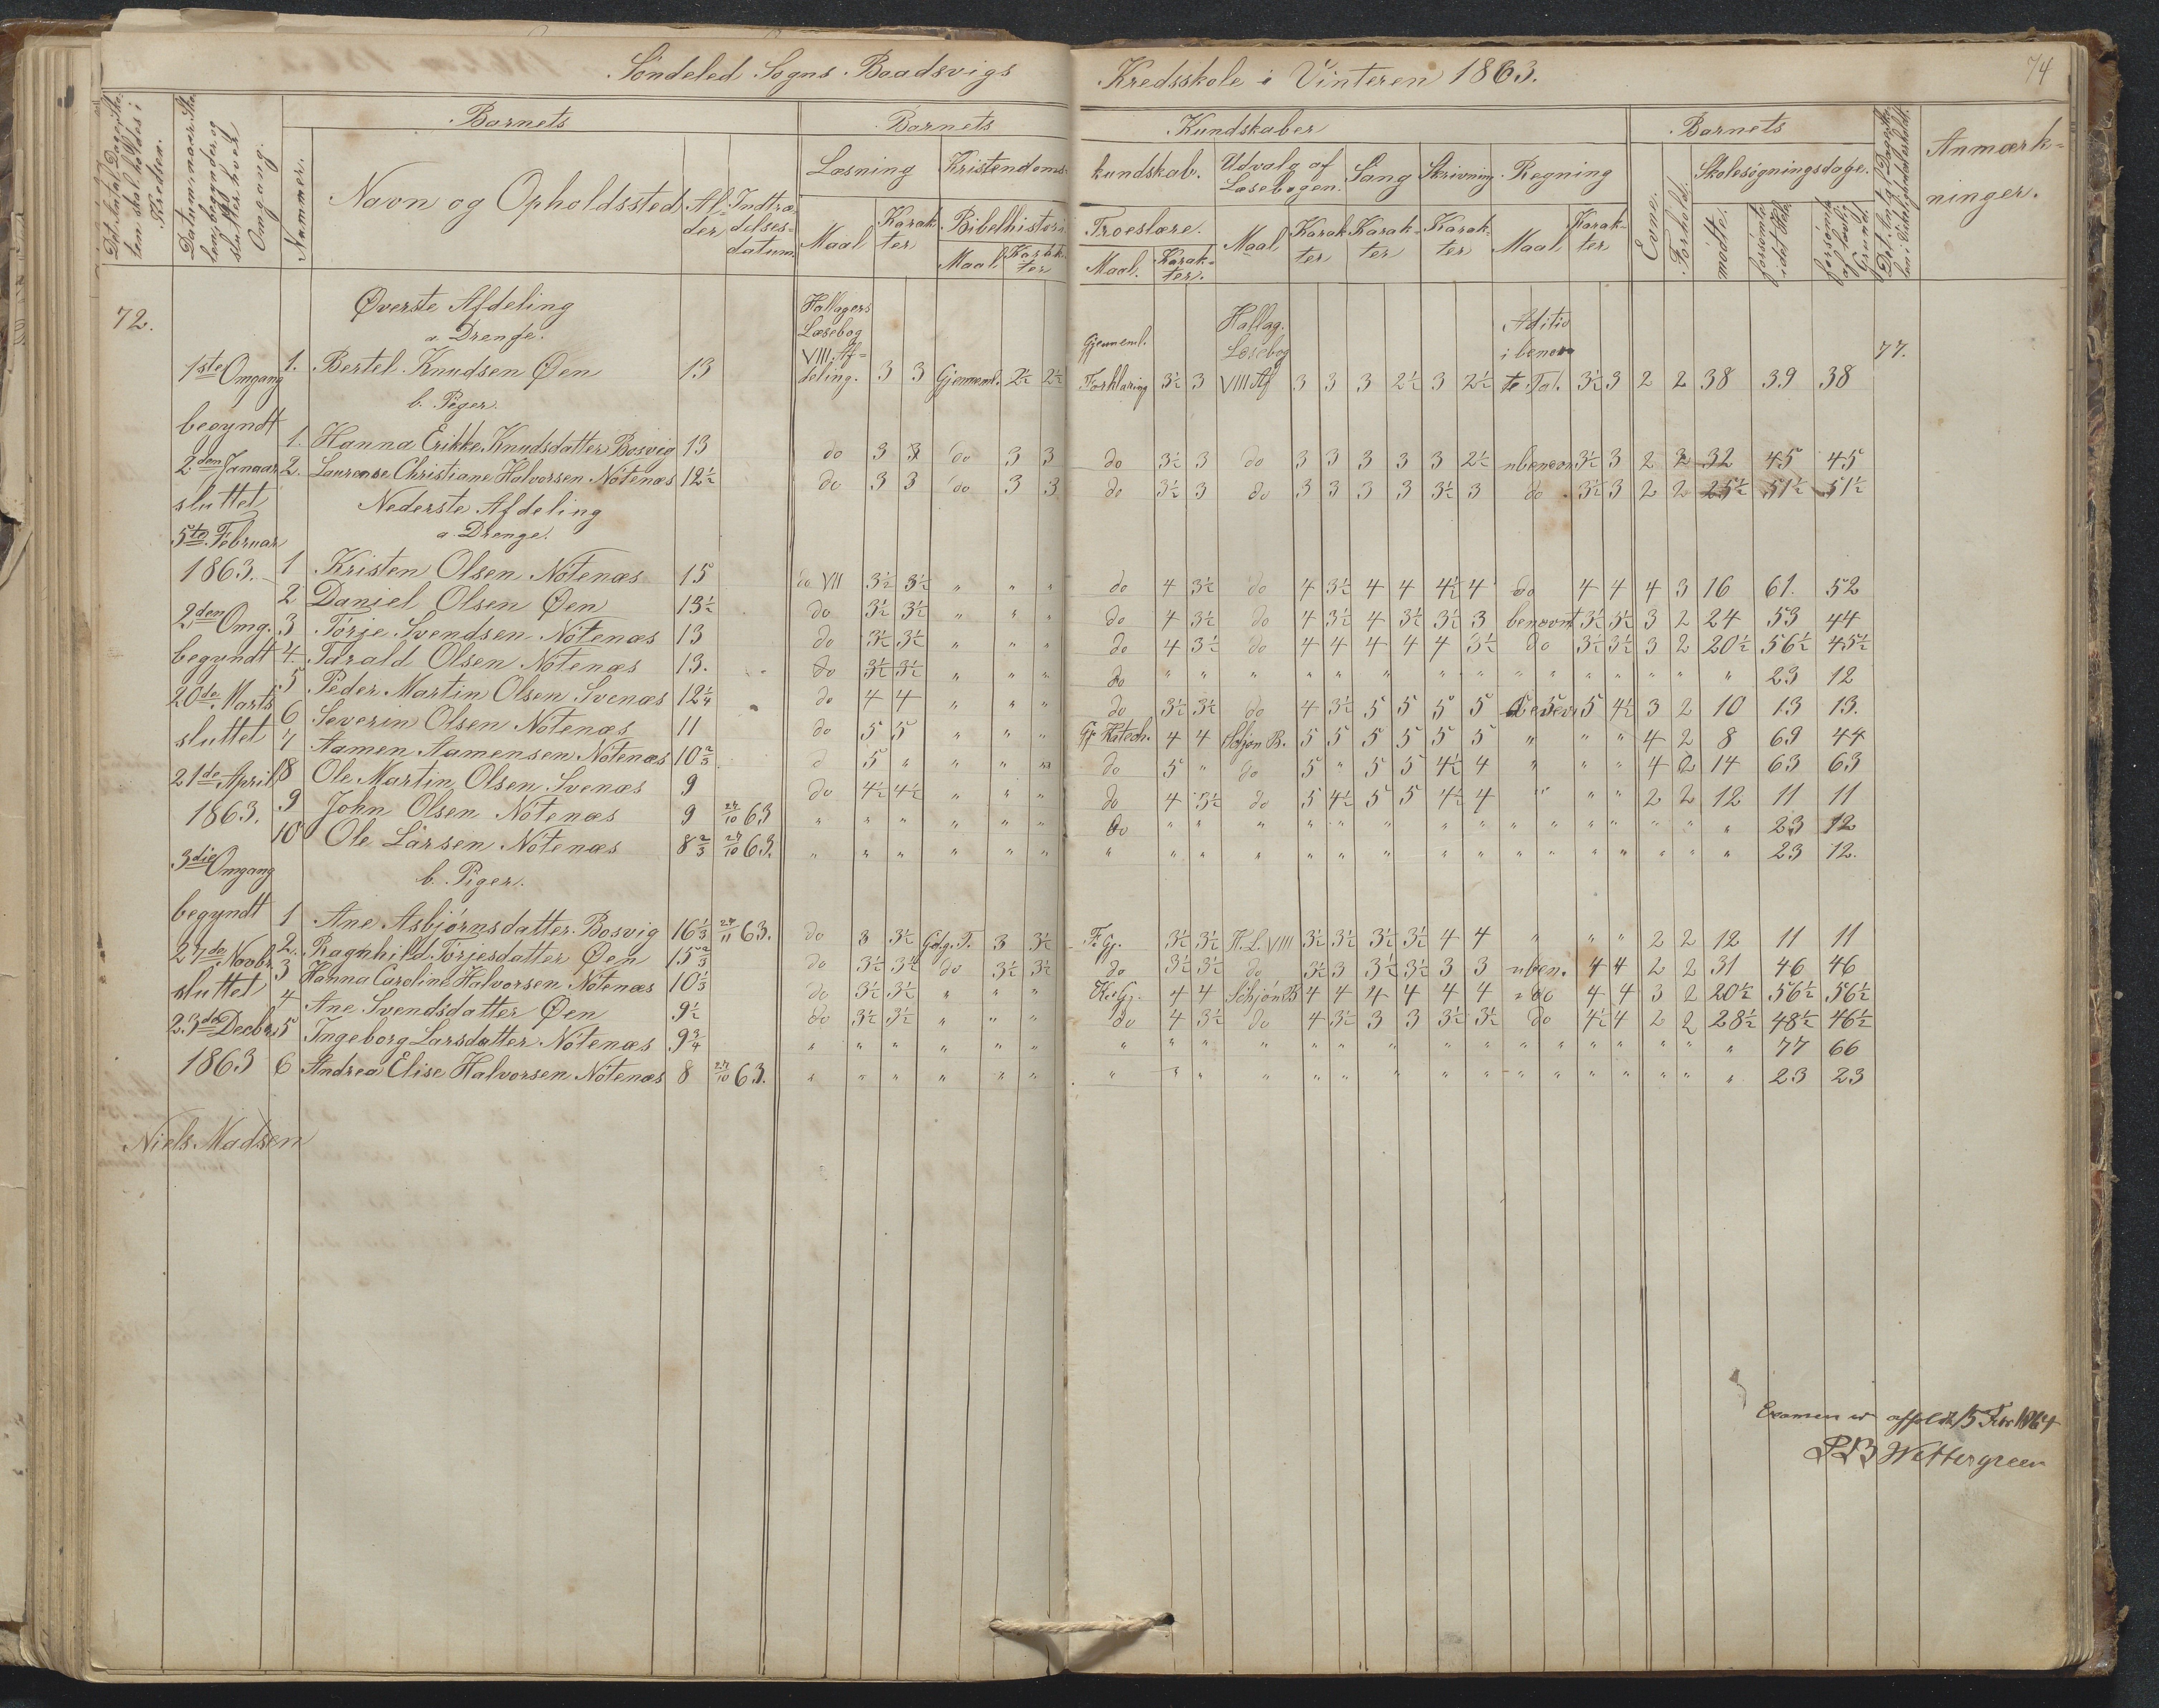 Söndeled Sogns Baadsvigs Kredsskole i Vinteren 1863. 74
Det Antal Dage Skolen skal holdes i Kredsen.
Datum naar Skolen begyndes og sluttes hver Omgang.
Nummer.
Barnets Barnets Kundskaber Barnets
Navn og Opholdssted Alder Indtrædelsesdatum
Læsning Kristendomskundskab. Udvalg af Læsebogen. Sang Skrivning Regning
Maal Karakter Bibelhistorie Maal Karakter Troeslære. Maal. Karakter. Maal Karakter Karakter Karakter Maal Karakter
Evne. Forhold. Skolesøgningsdage. mødte. forsømte i det Hele forsømte af lovlig Grund
Anmærkninger.
72. Øverste Afdeling Hallagers Læsebog VIII Afdeling. Gjenneml. Forklaring Hallag. Læsebog VIII Af Aditio i benævnte Tal. 77.
a. Drenge.
1ste Omgang 1. Bertel Knudsen Øen 13 3 3 Gjenneml. 2½ 2½ 3½ 3 3 3 3 2½ 3 2½ 3½ 3 2 2 38 39 38
b. Piger.
begyndt 1. Hanna Erikke Knudsdatter Bosvig 13 do 3 3 do 3 3 do 3½ 3 do 3 3 3 3 3 2½ ubenævn 3½ 3 2 2 32 45 45
2den Januar 2. Laurense Christiane Halvorsen Nötenæs 12½ do 3 3 do 3 3 do 3½ 3 do 3 3 3 3 3½ 3 do 3½ 3 2 2 25½ 51½ 51½
sluttet Nederste Afdeling
5te Februar a. Drenge.
1863. 1 Kristen Olsen Nötenæs 15 do VII 3½ 3½ " " " do 4 3½ do 4 3½ 4 4 4½ 4 do 4 4 4 3 16 61. 52
2 Daniel Olsen Øen 13½ do 3½ 3½ " " " do 4 3½ do 4 3½ 4 3½ 3½ 3 benævnt 3½ 3½ 3 2 24 53 44
2den Omg. 3 Törje Svendsen Nötenæs 13 do 3½ 3½ " " " do 4 3½ do 4 4 4 4 4 3½ do 3½ 3½ 3 2 20½ 56½ 45½
begyndt 4. Tarald Olsen Nötenæs 13. do 3½ 3½ " " " do " " " " " " " " " " " " " " " 23 12
20de Marts 5 Peder Martin Olsen Svenæs 12¼ do 4 4 " " " do 3½ 3½ do 4 3½ 5 5 5 5 5 4½ 3 2 10 13 13.
6 Severin Olsen Nötenæs 11 do 5 5 " " " Gj Katech. 4 4 Schjøn B. 5 5 5 5 5 5 " " " 4 2 8 69 44
sluttet 7 Aamen Aamensen Nötenæs 10⅔ d 5 " " " " do 5 " do 5 " 5 5 4½ 4 " " " 4 2 14 63 63
21de April 8 Ole Martin Olsen Svenæs 9 do 4½ 4½ " " " do 4 3½ do 5 4½ 5 5 4½ 4 " " " 2 2 12 11 11
1863. 9 John Olsen Nötenæs 9 27/10 63 " " " " " " do " " " " " " " " " " " " " " 23 12
10 Ole Larsen Nötenæs 8⅔ 27/10 63. " " " " " " " " " " " " " " " " " " " " " 23 12.
3die Omgang b. Piger.
begyndt 1 Ane Asbjørnsdatter Bosvig 16⅓ 27/11 63. do 3 3½ Gd.g.T. 3 3½ F. Gj. 3½ 3½ H. L. VIII 3½ 3½ 3½ 3½ 4 4 " " " 2 2 12 11 11
27de Novbr. 2. Ragnhild Törjesdatter Øen 15⅔ do 3½ 3½ do 3½ 3½ do 3½ 3½ do 3½ 3 3½ 3½ 3 3 uben. 4 4 2 2 31 46 46
sluttet 3 Hanna Caroline Halvorsen Nötenæs 10⅓ do 3½ 3½ " " " K. Gj. 4 4 Schjøn B 4 4 4 4 4 4 " do 4 4 3 2 20½ 56½ 56½
4 Ane Svendsdatter Øen 9½ do 3½ 3½ " " " do 4 3½ do 4 3½ 3 3 3½ 3½ do 4½ 4 2 2 28½ 48½ 46½
23de Decbr. 5 Ingeborg Larsdatter Nötenæs 9¾ " " " " " " " " " " " " " " " " " " " " " 77 66
1863 6 Andrea Elise Halvorsen Nötenæs 8 27/10 63. " " " " " " " " " " " " " " " " " " " " " 23 23
Niels Madsen
Examen er afholdt 15 Febr 1864
P B Wettergreen